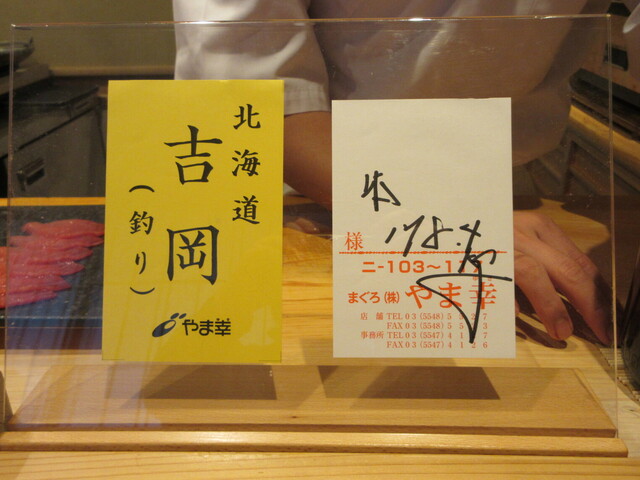 北海道
吉岡
(釣り)
やま幸
178.4
様
ニ-103~1
まぐろ(株)やま幸
店舗 TEL 03(5548)5
FAX 03(5548)5
事務所 TEL 03(5547)41
FAX 03(5547)4126